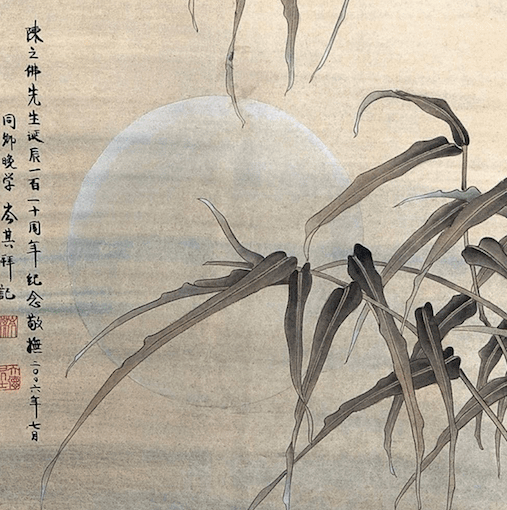 陳之佛先生诞辰一百一十周年纪念敬橅二〇〇六年七月
同鄉晚学岑其拜記